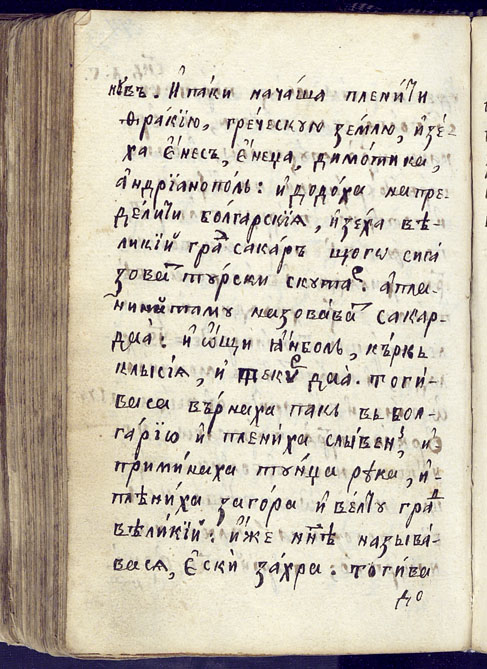 новъ. И҆ паки нача́ша плени́ти
ѳра́кїю, гре́ческую зе́млю, и҆зѐ-
ха є҆́несъ, є҆́неца, димо́тика,
а҆ндрїанопо́ль: и҆ додо́ха на пре-
де́лити болга́рскїѧ, и҆зе́ха вѣ-
ли́кїй граⷣ сака́ръ щогѡ сига̀
зоваⷮ ту́рски скутаⷬ: а҆ пла-
нина́ таму назова́ваⷮ сака́р-
даа̀: и҆ ѡ҆́щи ꙗ҆́нболь, къркъ
клысїѧ, и҆ теке даа̀. тоги́-
васа въ́рнаха пакъ въ бол-
га́рїю и҆ плени́ха слы́вен, и҆
примина́ха ту́нца рѣка, и҆-
плѣни́ха заго́ра и҆ ве́лїу граⷣ
вѣли́кїй: и҆́же нн҃ѣ называ́-
васѧ, є҆скѝ за́хра: тоги́ва
до